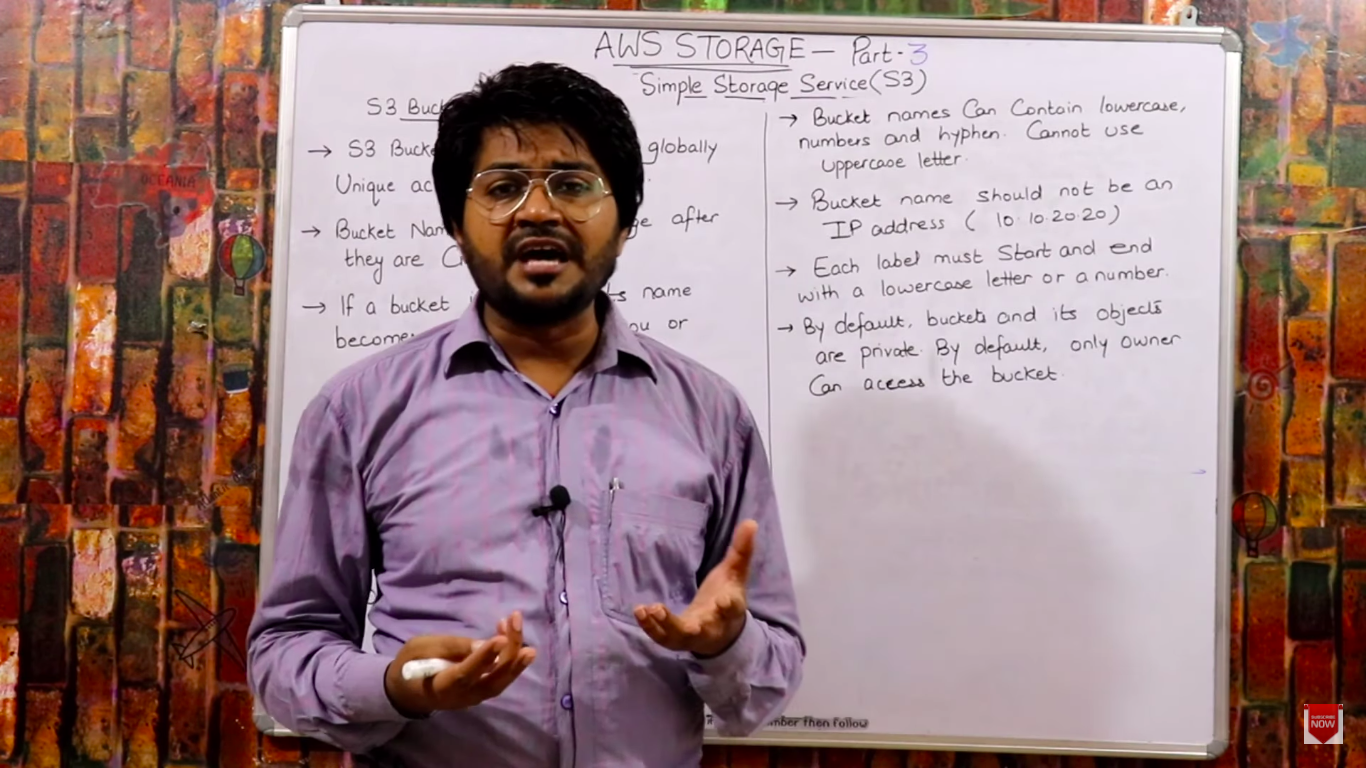 AWS STORAGE — Part-3
Simple Storage Service (S3)
S3 Buck
→ S3 Bucke globally
Unique ac
→ Bucket Nam ge after
they are C
→ If a bucket ts name
become ou or
→ Bucket names Can Contain lowercase,
numbers and hyphen. Cannot use
uppercase letter.
→ Bucket name should not be an
IP address ( 10.10.20.20)
→ Each label must Start and end
with a lowercase letter or a number.
→ By default, buckets and its objects
are private. By default, only owner
Can access the bucket.
OCEANIA
mber then follow
SUBSCRIBE
NOW